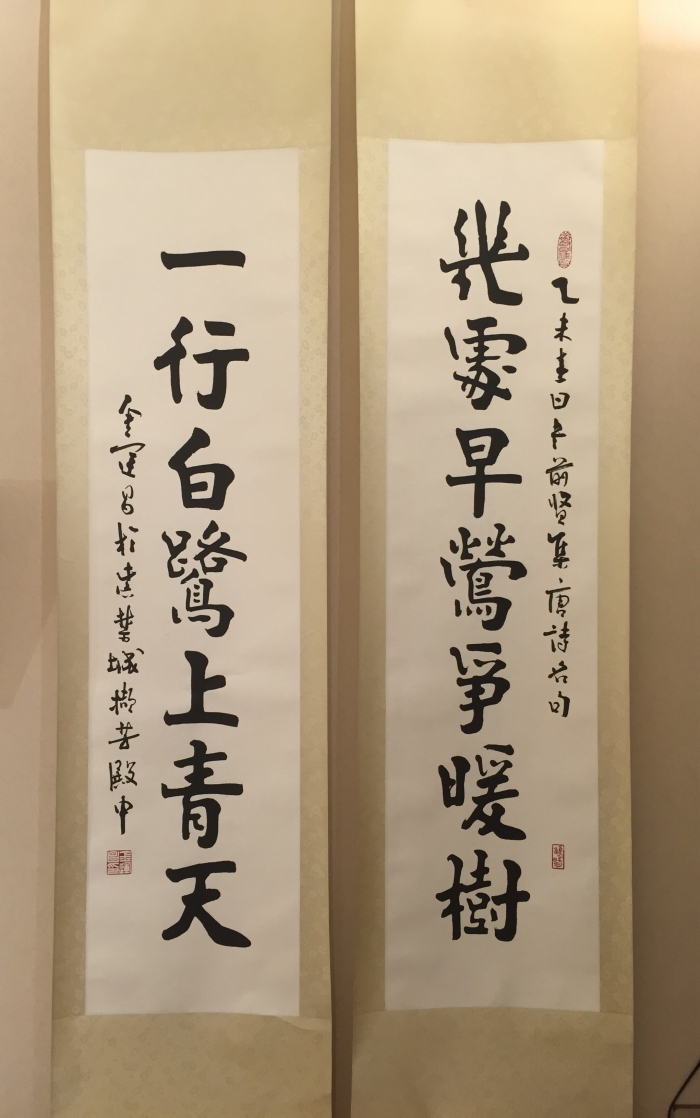 乙未春日書前賢集唐詩名句
幾處早鶯爭暖樹
一行白鷺上青天
金運昌於紫禁城擷芳殿中